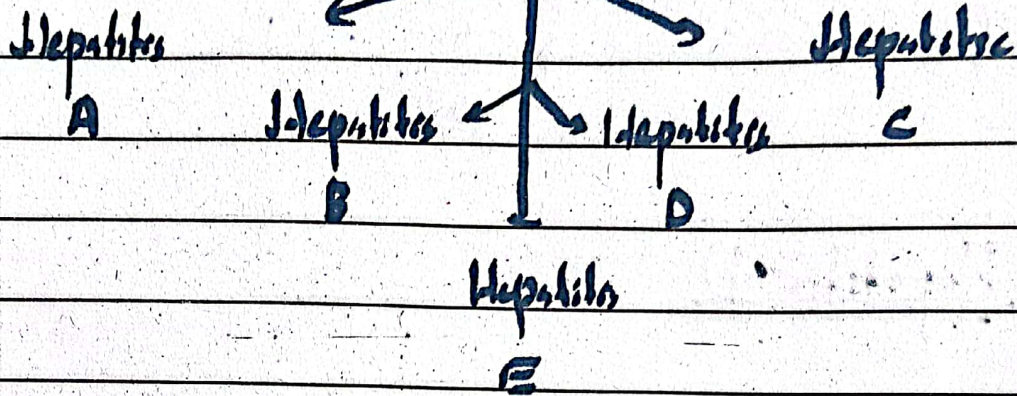 Hepatitis Hepatitis
A Hepatitis Hepatitis C
B D
Hepatitis
E